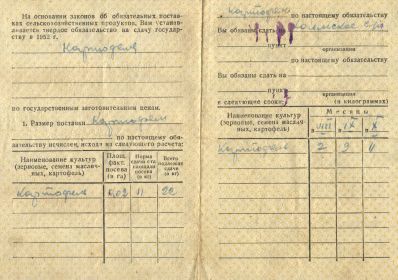 На основании законов об обязательных постав-
ках сельскохозяйственных продуктов, Вам уста-
навливается твердое обязательство на сдачу государ-
ству в 1952 г.
Картофеля
по государственным заготовительным ценам.
1. Размер поставки картофеля
по настоящему обя-
зательству исчислен, исходя из следующего расчета:
Наименование культур
(зерновые, семена маслич-
ных, картофель)
Площ.
факт.
посева
(в га)
Норма
сдачи с га
площади
посева
(в кг)
Всего
подлежит
сдаче
(в кг)
Картофель 0,02 11 22
картофель по настоящему обязательству
Вы обязаны сдать
пункт
организация
по настоящему обязательству
Вы обязаны сдать на
пункт
организация
в следующие сроки:
(в килограммах)
Наименование культур
(зерновые, семена маслич-
ных, картофель)
Месяцы
VIII IX X
Картофель 2 9 11